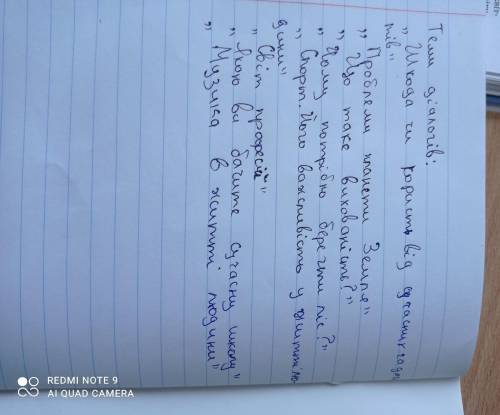 Теми діалогів.
„ Шкода чи користь від сучасних гадже
тів"
„ Проблеми планети Земля"
„ Що таке вихованість?"
„ Чому потрібно берегти ліс?"
„ Спорт. Його важливість у житті лю
дини"
„ Світ професій"
„ Якою ви бачите сучасну школу"
„ Музика в житті людини"
REDMI NOTE 9
AI QUAD CAMERA